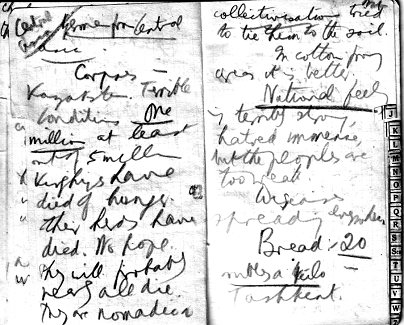 Central
from Central
Asia.
Corpses –
Kazakstan Terrible
Conditions One
million at least
out of 5 million
Kirghiz have
died of hunger.
Their herds have
died. No hope.
They will probably
nearly all die.
They are nomadic
collectivisation tried
to tie them to the soil.
In cotton
areas it is better.
National feeling
is terribly strong,
hatred immense,
but the peoples are
too weak.
spreading
Bread :- 20
roubles a kilo –
Tashkent.
J
K
L
M
N
O
P
Q
R
S
T
U
V
W